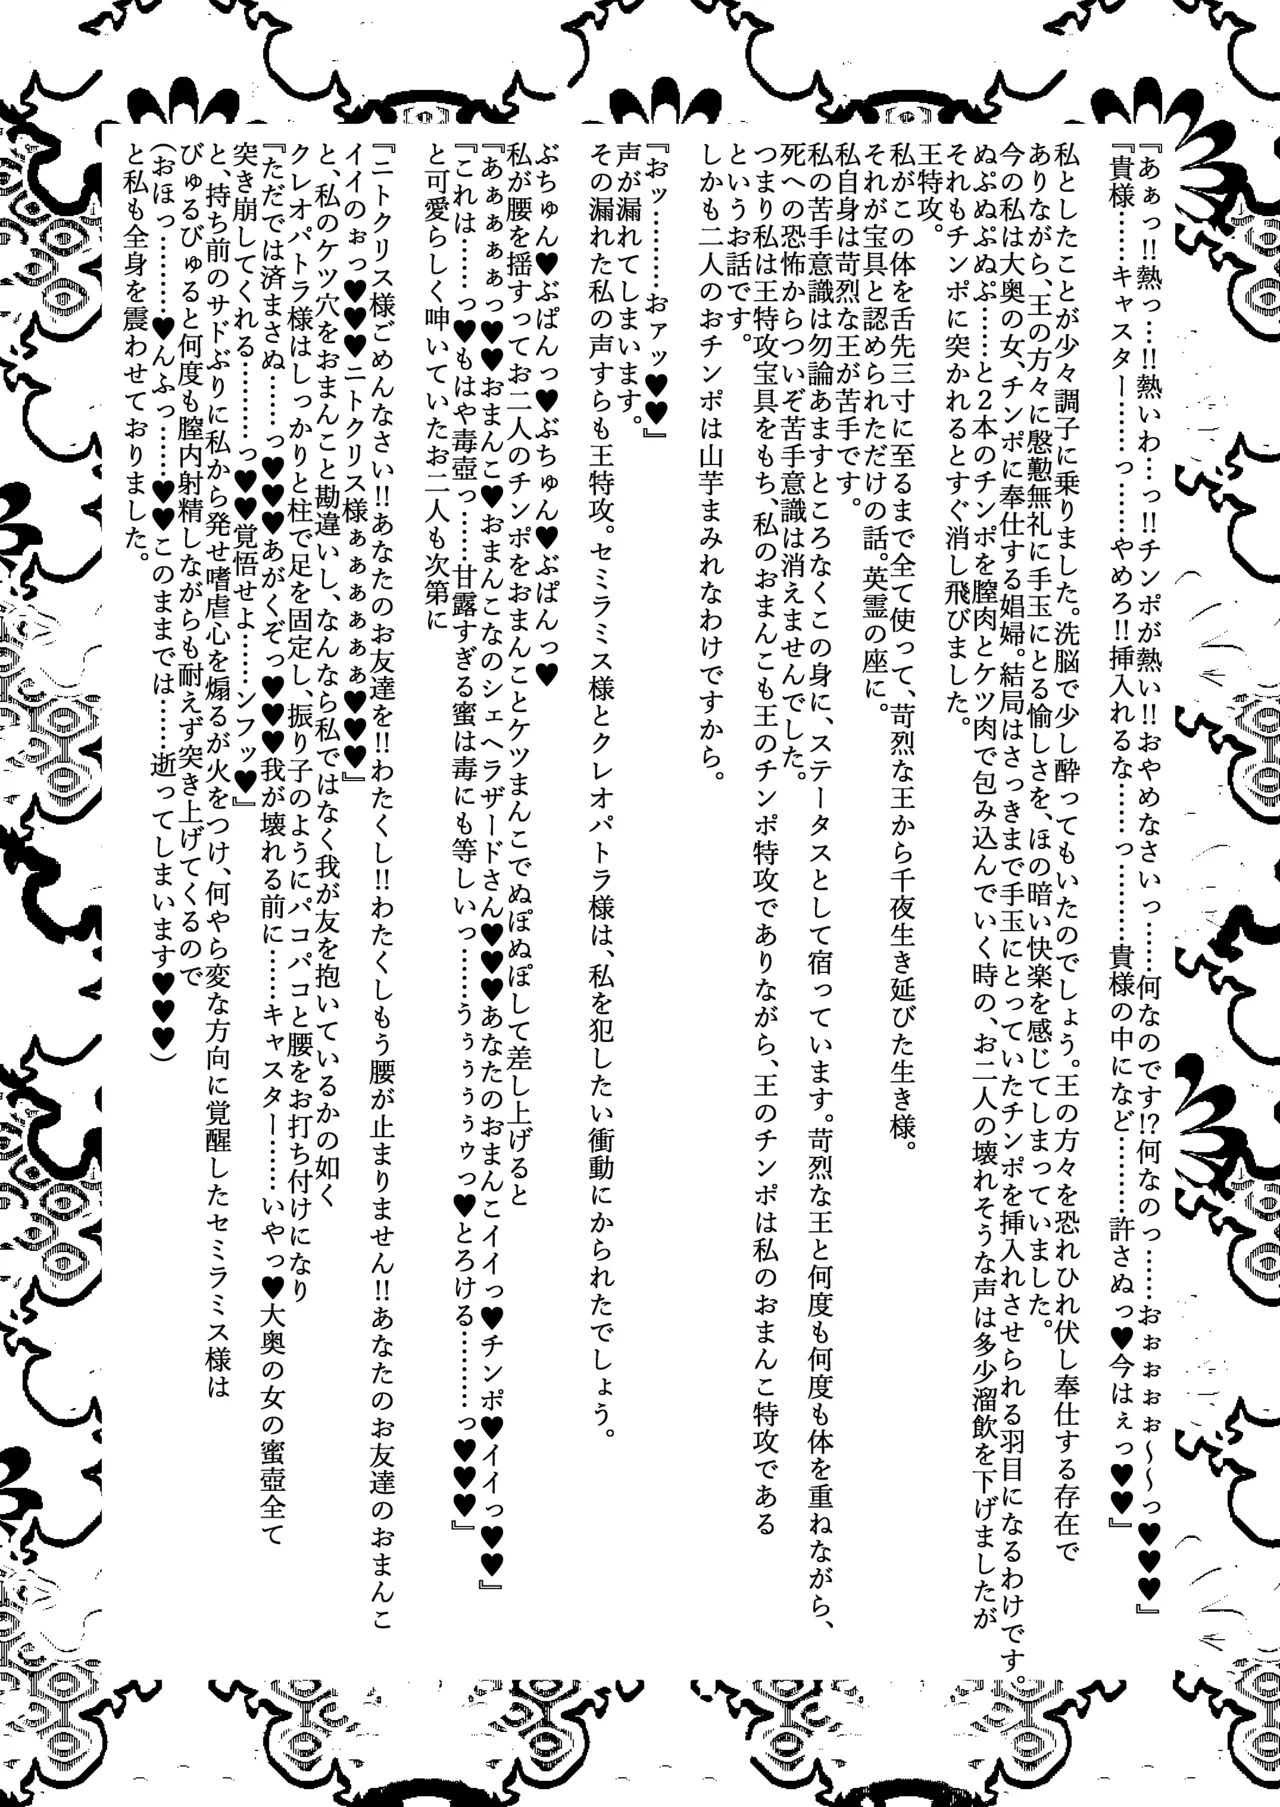 『あぁっ!!熱っ…!!熱いわ…っ!!チンポが熱い!!おやめなさいっ……何なのです!?何なのっ……おぉぉぉぉ～～っ♥♥♥』
『貴様……キャスター………っ……やめろ!!挿入れるな……っ………貴様の中になど………許さぬっ♥今はぇっ♥♥』
私としたことが少々調子に乗りました。洗脳で少し酔ってもいたのでしょう。王の方々を恐れひれ伏し奉仕する存在で
ありながら、王の方々に慇懃無礼に手玉にとる愉しさを、ほの暗い快楽を感じてしまっていました。
今の私は大奥の女、チンポに奉仕する娼婦。結局はさっきまで手玉にとっていたチンポを挿入れさせられる羽目になるわけです。
ぬぷぬぷぬぷ……と2本のチンポを膣肉とケツ肉で包み込んでいく時の、お二人の壊れそうな声は多少溜飲を下げましたが
それもチンポに突かれるとすぐ消し飛びました。
王特攻。
私がこの体を舌先三寸に至るまで全て使って、苛烈な王から千夜生き延びた生き様。
それが宝具と認められただけの話。英霊の座に。
私自身は苛烈な王が苦手です。
私の苦手意識は勿論あますところなくこの身に、ステータスとして宿っています。苛烈な王と何度も何度も体を重ねながら、
死への恐怖からついぞ苦手意識は消えませんでした。
つまり私は王特攻宝具をもち、私のおまんこも王のチンポ特攻でありながら、王のチンポは私のおまんこ特攻である
というお話です。
しかも二人のおチンポは山芋まみれなわけですから。
『おッ………おァッ♥♥』
声が漏れてしまいます。
その漏れた私の声すらも王特攻。セミラミス様とクレオパトラ様は、私を犯したい衝動にかられたでしょう。
ぶちゅん♥ぶぱんっ♥ぶちゅん♥ぶぱんっ♥
私が腰を揺すってお二人のチンポをおまんことケツまんこでぬぽぬぽして差し上げると
『あぁぁぁぁっ♥♥おまんこ♥おまんこなのシェヘラザードさん♥♥♥あなたのおまんこイイっ♥チンポ♥イイっ♥♥』
『これは……っ♥もはや毒壺っ……甘露すぎる蜜は毒にも等しいっ……うぅぅぅぅゥっ♥とろける………っ♥♥♥』
と可愛らしく呻いていたお二人も次第に
『ニトクリス様ごめんなさい!!あなたのお友達を!!わたくし!!わたくしもう腰が止まりません!!あなたのお友達のおまんこ
イイのぉっ♥♥♥ニトクリス様ぁぁぁぁぁぁ♥♥♥』
と、私のケツ穴をおまんこと勘違いし、なんなら私ではなく我が友を抱いているかの如く
クレオパトラ様はしっかりと柱で足を固定し、振り子のようにパコパコと腰をお打ち付けになり
『ただでは済まさぬ……っ♥♥♥あがくぞっ♥♥♥我が壊れる前に……キャスター……いやっ♥大奥の女の蜜壺全て
突き崩してくれる………っ♥♥覚悟せよ……ンフッ♥』
と、持ち前のサドぶりに私から発せ嗜虐心を煽るが火をつけ、何やら変な方向に覚醒したセミラミス様は
びゅるびゅると何度も膣内射精しながらも耐えず突き上げてくるので
(おほっ………♥んふっ……♥♥このままでは……逝ってしまいます♥♥♥)
と私も全身を震わせておりました。